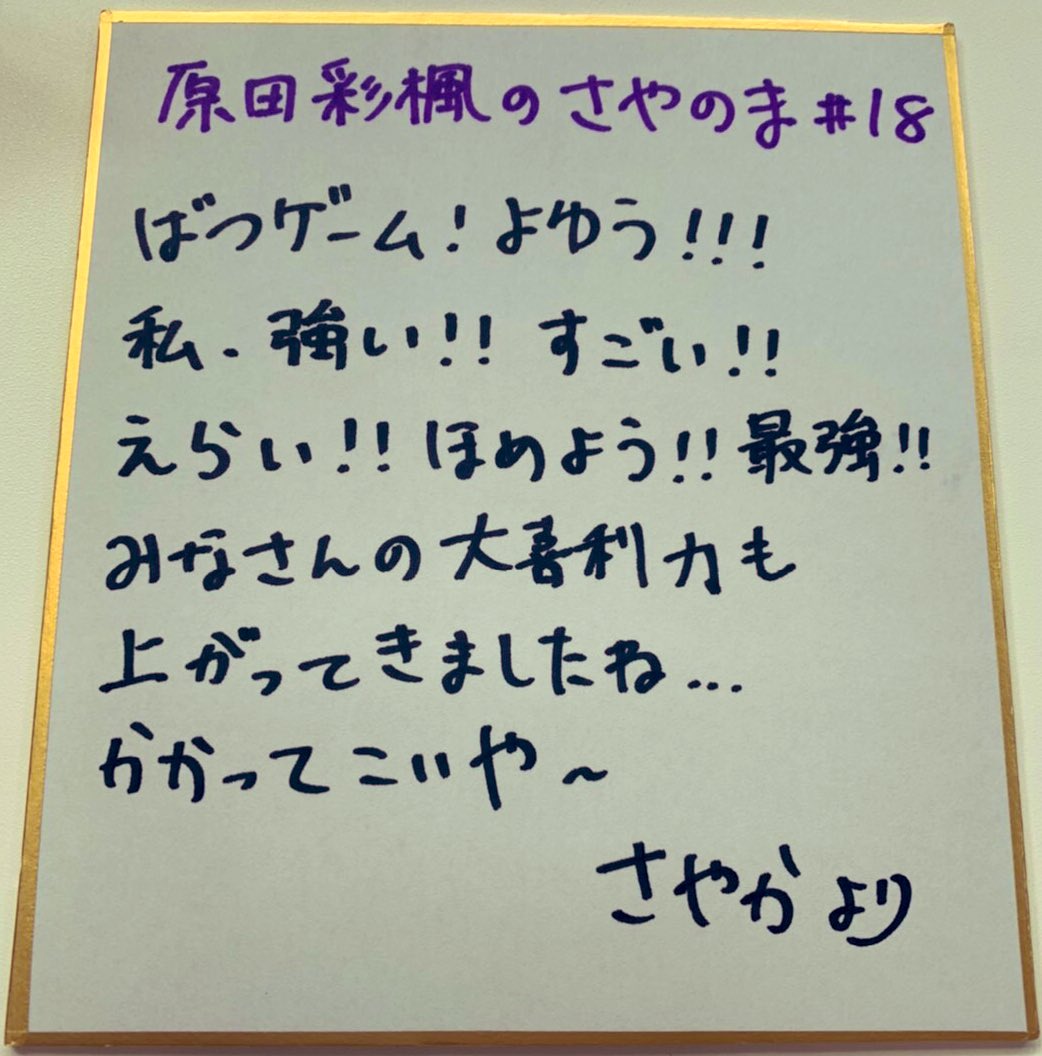 原田彩楓のさやのま#18
ばつゲーム!よゆう!!!
私、強い!!すごい!!
えらい!!ほめよう!!最強!!
みなさんの大喜利力も
上がってきましたね...
かかってこいや~
さやかより